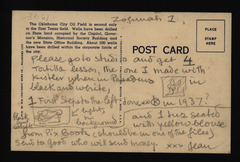 Zozmiah I.
The Oklahoma City Oil Field is second only
to the East Texas field. Wells have been drilled
on State land occupied by the Capitol, Governor's Mansion, Historical Society Building and
the new State Office Building. About 200 wells
have been drilled within the corporate limits of
the city.
POST CARD
PLACE
STAMP
HERE
Please go to studio and get 4
Tortilla lesson, the one I made with
Kistler when in
in
black and white,
1 Four Steps to the Left
in 1937?
lights
in
background
and 1 big seated
with yellow blouse
from Pix Book (should be in one of the files)
Sent to good who will send money. xxx Jean